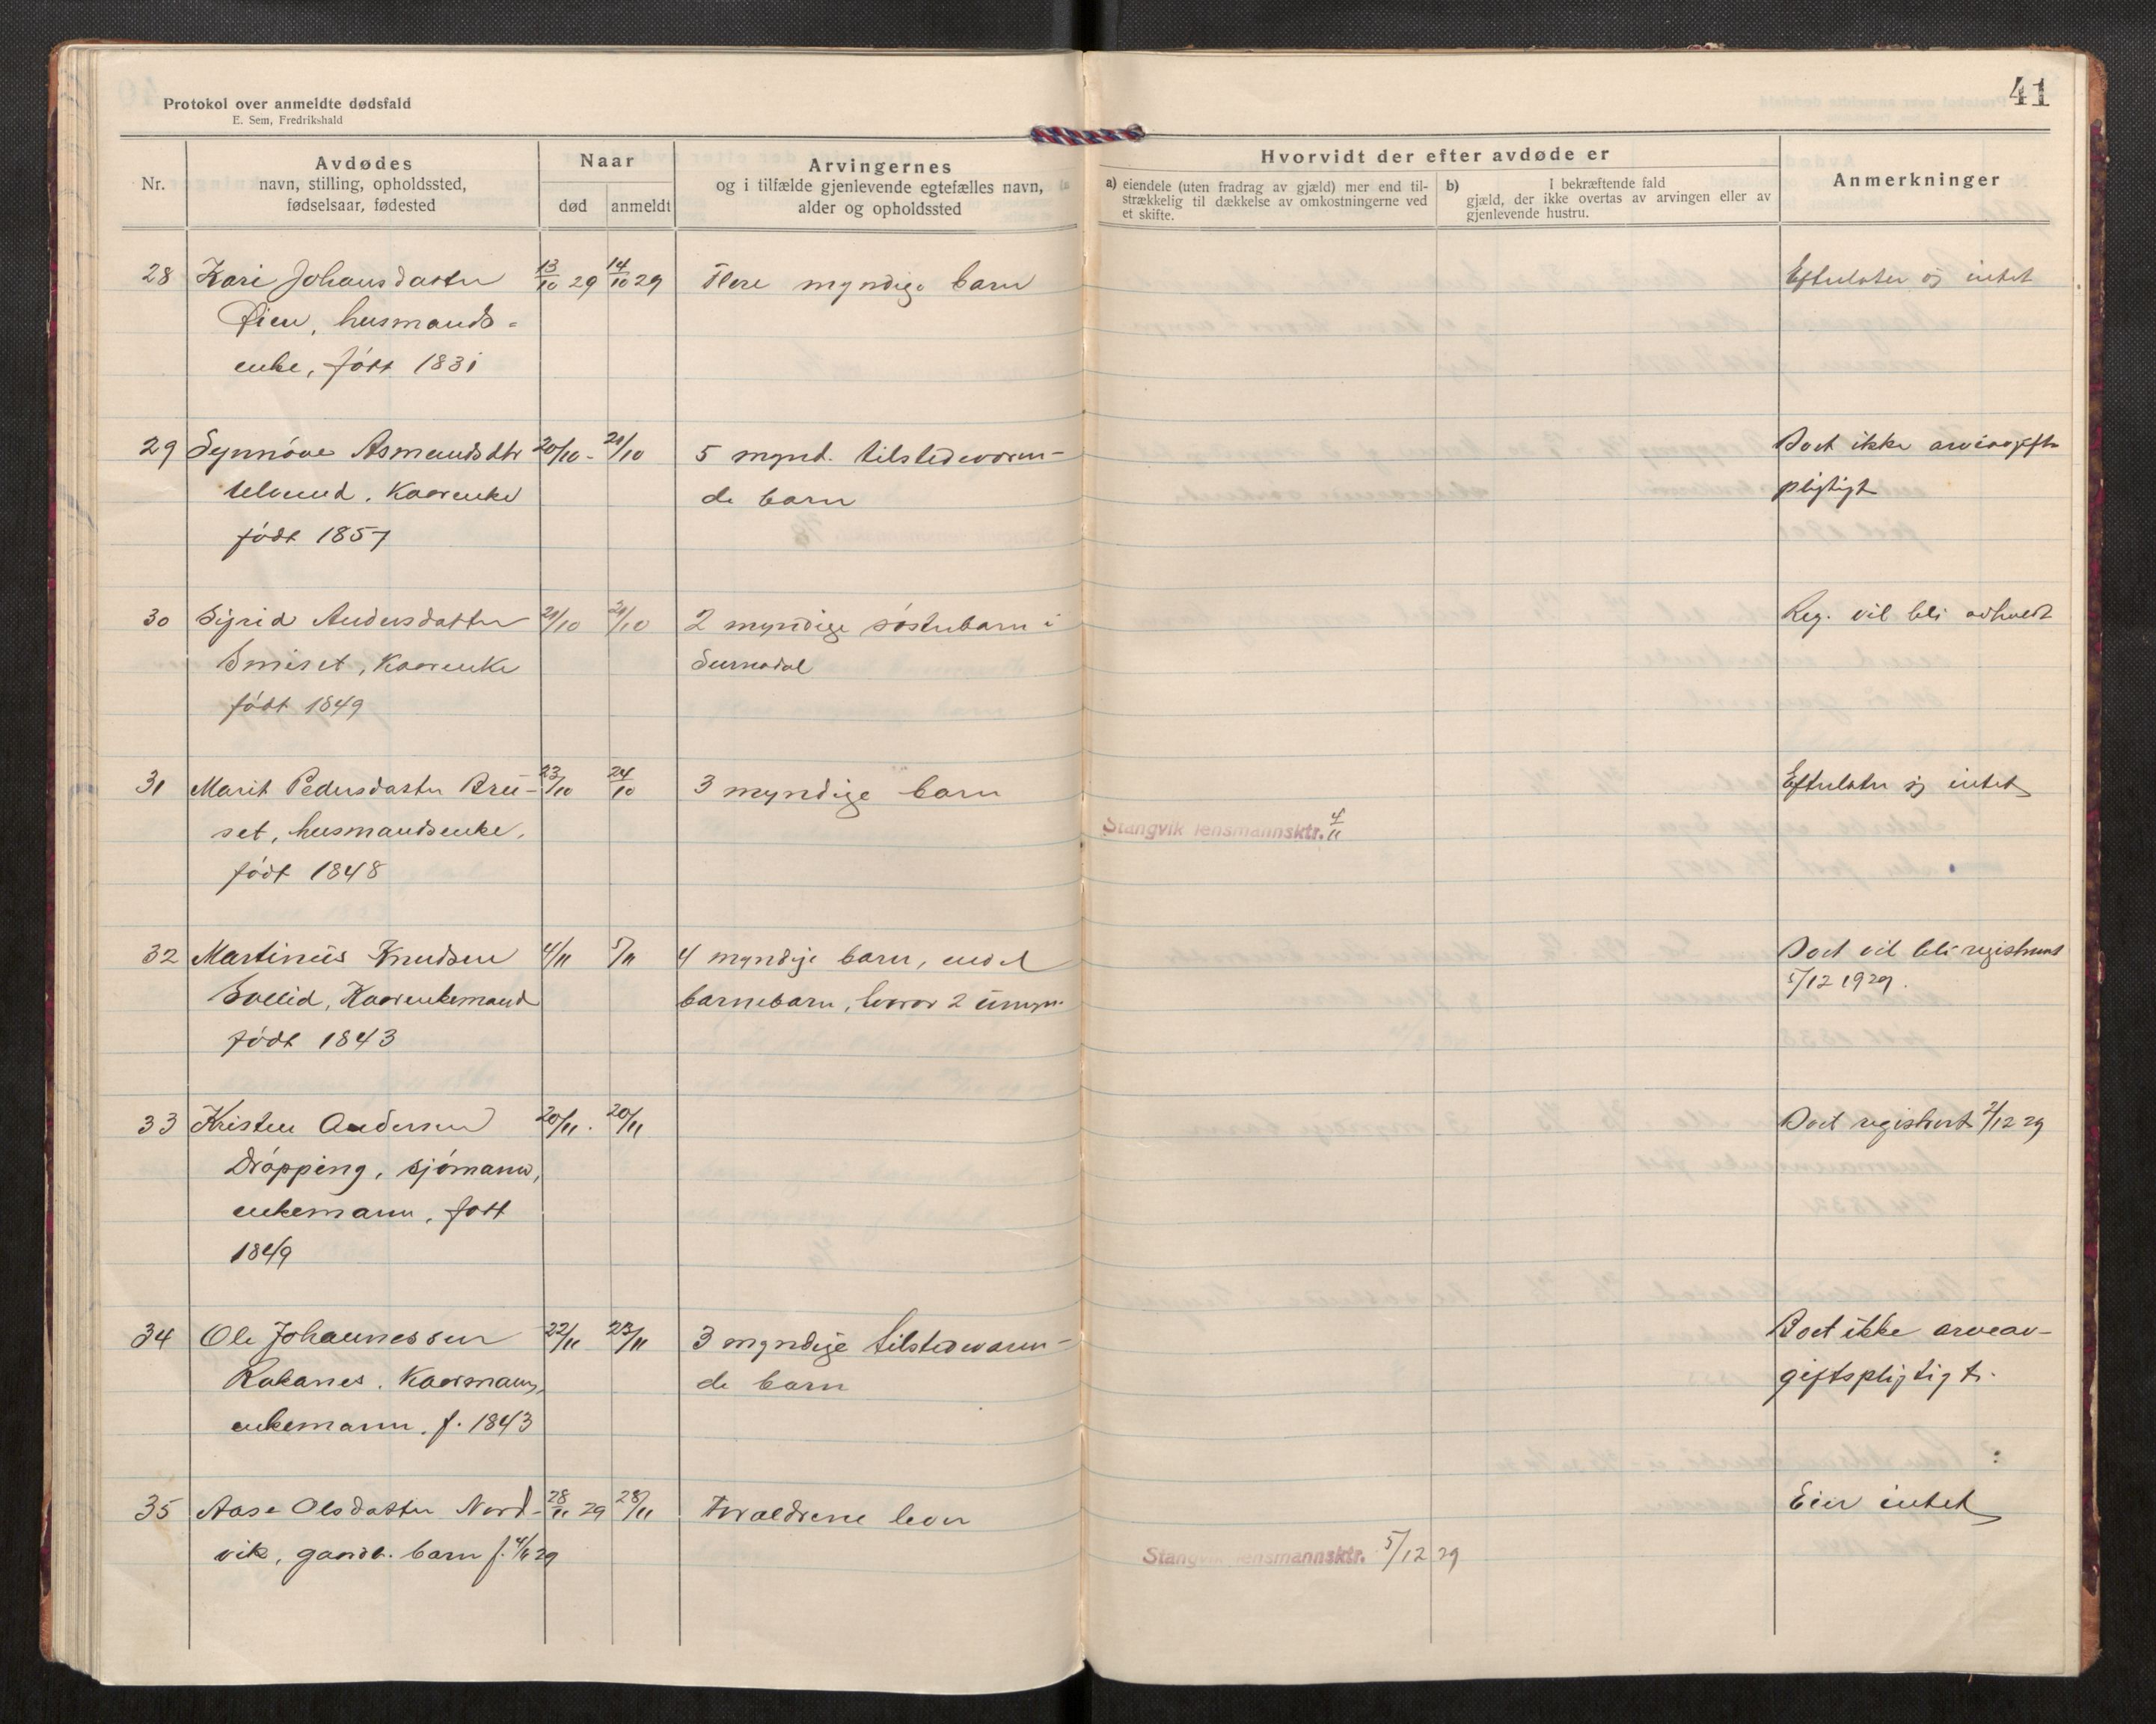 41
Protokol over anmeldte dødsfald
E. Sem, Fredrikshald
Nr.
Avdødes
navn, stilling, opholdssted,
fødselsaar, fødested
Naar
død
anmeldt
Arvingernes
og i tilfælde gjenlevende egtefælles navn,
alder og opholdssted
Hvorvidt der efter avdøde er
a) eiendele (uten fradrag av gjæld) mer end til-
strækkelig til dækkelse av omkostningerne ved
et skifte.
b) I bekræftende fald
gjæld, der ikke overtas av arvingen eller av
gjenlevende hustru.
Anmerkninger
28 Kari Johansdatter 13/10 29 14/10 29 Flere myndige barn Efterlater sig intet
Øien, husmands-
enke, født 1831
29 Synnøve Asmundsdtr 20/10 - 21/10 5 mynd. tilstedeværen- Boet ikke arveavgifts
Ulvund, Kaarenke de barn pligtigt
født 1857
30 Sigrid Andersdatter 21/10 21/10 2 myndige søsterbarn i Reg. vil bli avholdt
Smiset, Kaarenke Surnadal
født 1849
31 Marit Pedersdatter Brü- 23/10 24/10 3 myndige barn Efterlater sig intet
set, husmandsenke,
Stangvik lensmannsktr. 4/11
født 1848
32 Martinus Knudsen 4/11 5/11 4 myndige barn, endel Boet vil bli registrert
Sollid, Kaarenkemand barnebarn, hvorav 2 umyn. 5/12 1929.
født 1843
33 Kristen Andersen 20/11. 20/11 Boet registrert 2/12 29
Drøpping, sjømann,
enkemann, født
1849
34 Ole Johannessen 22/11 23/11 3 myndige tilstedeværen- Boet ikke arveav-
Rakanes. Kaarmann, de barn giftspligtigt.
enkemann, f. 1843
35 Aase Olsdatter Nord- 28/11 29 28/11 Forældrene lever Eier intet
vik, gaardb. barn f. 29
Stangvik lensmannsktr. 5/12 29